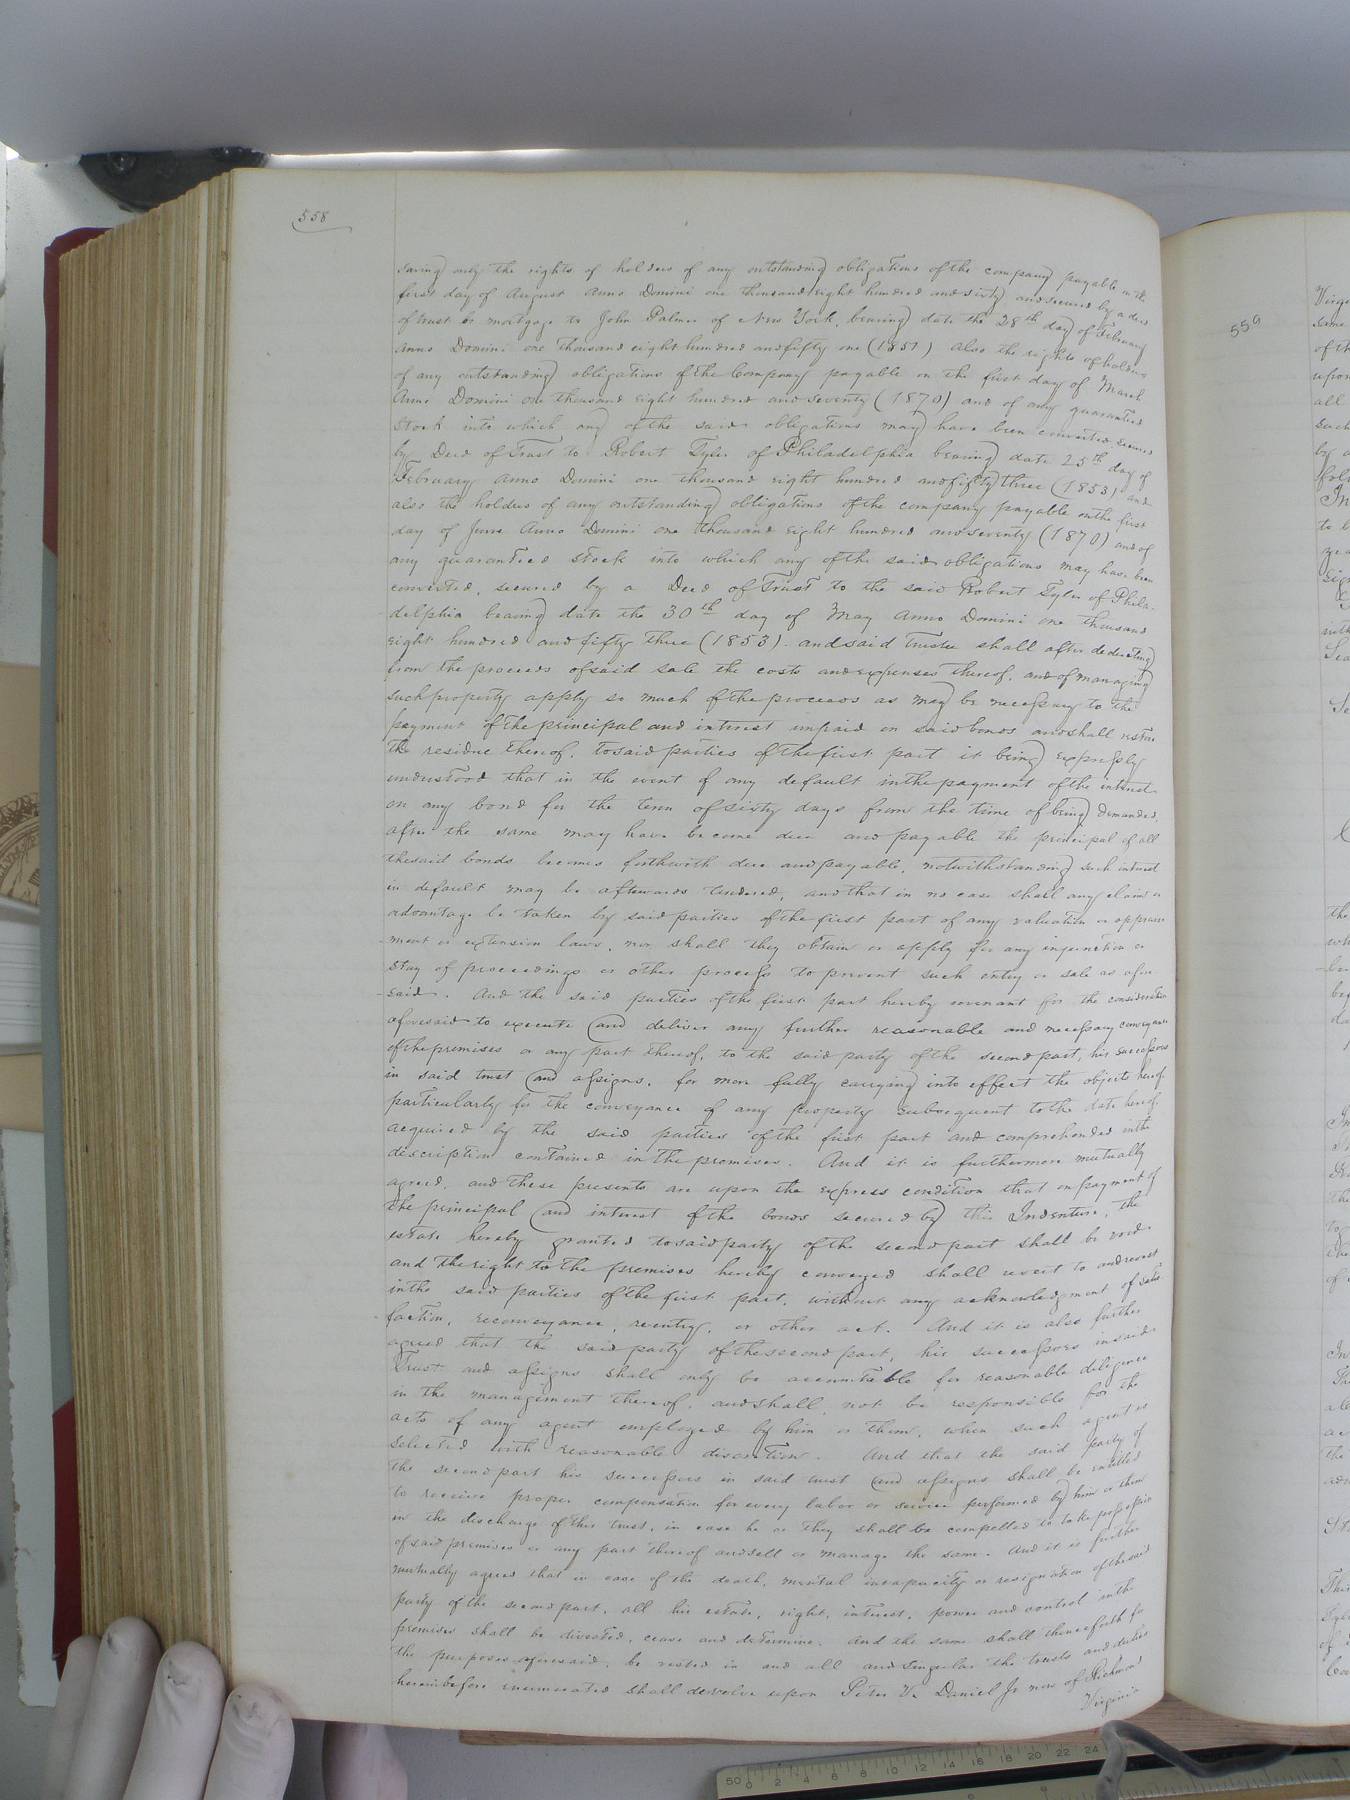 558
saving only the rights of holders of any outstanding obligations of the company payable on the
first day of August Anno Domini one thousand eight hundred and sixty and secured by a deed
of trust or mortgage to John Palmer of New York, bearing date the 28th day of February
Anno Domini one thousand eight hundred and fifty one (1851) also the rights of holders
of any outstanding obligations of the Company payable on the first day of March
Anno Domini one thousand eight hundred and seventy (1870) and of any guarantied
stock into which any of the said obligations may have been converted, secured
by Deed of Trust to Robert Tyler of Philadelphia bearing date 25th day of
February Anno Domini one thousand eight hundred and fifty three (1853) and
also the holders of any outstanding obligations of the company payable on the first
day of June Anno Domini one thousand eight hundred and seventy (1870) and of
any guarantied stock into which any of the said obligations may have been
converted, secured by a Deed of Trust to the said Robert Tyler of Phila-
delphia bearing date the 30th day of May Anno Domini one thousand
eight hundred and fifty three (1853). and said trustee shall after deducting
from the proceeds of said sale the costs and expenses thereof, and of managing
such property apply so much of the proceeds as may be necessary to the
payment of the principal and interest unpaid on said bonds and shall restore
the residue thereof, to said parties of the first part it being expressly
understood that in the event of any default in the payment of the interest
on any bond for the term of sixty days from the time of being demanded,
after the same may have become due and payable the principal of all
the said bonds becomes forthwith due and payable, notwithstanding such interest
in default may be afterwards tendered, and that in no case shall any claim or
advantage be taken by said parties of the first part of any valuation or appraise
-ment or extension laws, nor shall they obtain or apply for any injunction or
stay of proceedings or other process to prevent such entry or sale as afore
-said. And the said parties of the first part hereby covenant for the consideration
aforesaid to execute and deliver any further reasonable and necessary conveyance
of the premises or any part thereof, to the said party of the second part, his successors
in said trust and assigns, for more fully carrying into effect the objects hereof
particularly for the conveyance of any property subsequent to the date hereof
acquired by the said parties of the first part and comprehended in the
description contained in the premises. And it is furthermore mutually
agreed, and these presents are upon the express condition that on payment of
the principal and interest of the bonds secured by this Indenture, the
estate hereby granted to said party of the second part shall be void
and the right to the premises hereby conveyed shall revert to and revest
in the said parties of the first part, without any acknowledgment of satis-
faction, reconveyance, reentry, or other act. And it is also further
agreed that the said party of the second part, his successors in said
Trust and assigns shall only be accountable for reasonable diligence
in the management thereof, and shall not be responsible for the
acts of any agent employed by him or them, when such agent is
selected with reasonable discretion. And that the said party of
the second part his successors in said trust and assigns shall be entitled
to receive proper compensation for every labor or service performed by him or them
in the discharge of this trust, in case he or they shall be compelled to take possession
of said premises or any part thereof and sell or manage the same. And it is further
mutually agreed that in case of the death, mental incapacity or resignation of the said
party of the second part, all his estate, right, interest, power and control in the
premises shall be divested, cease and determine. And the same shall thenceforth for
the purposes aforesaid, be vested in and all and singular the trusts and duties
hereinbefore enumerated shall devolve upon Peter V. Daniel Jr now of Richmond
Virginia
559
50 0 2 4 6 8 10 12 14 16 18 20 22 24